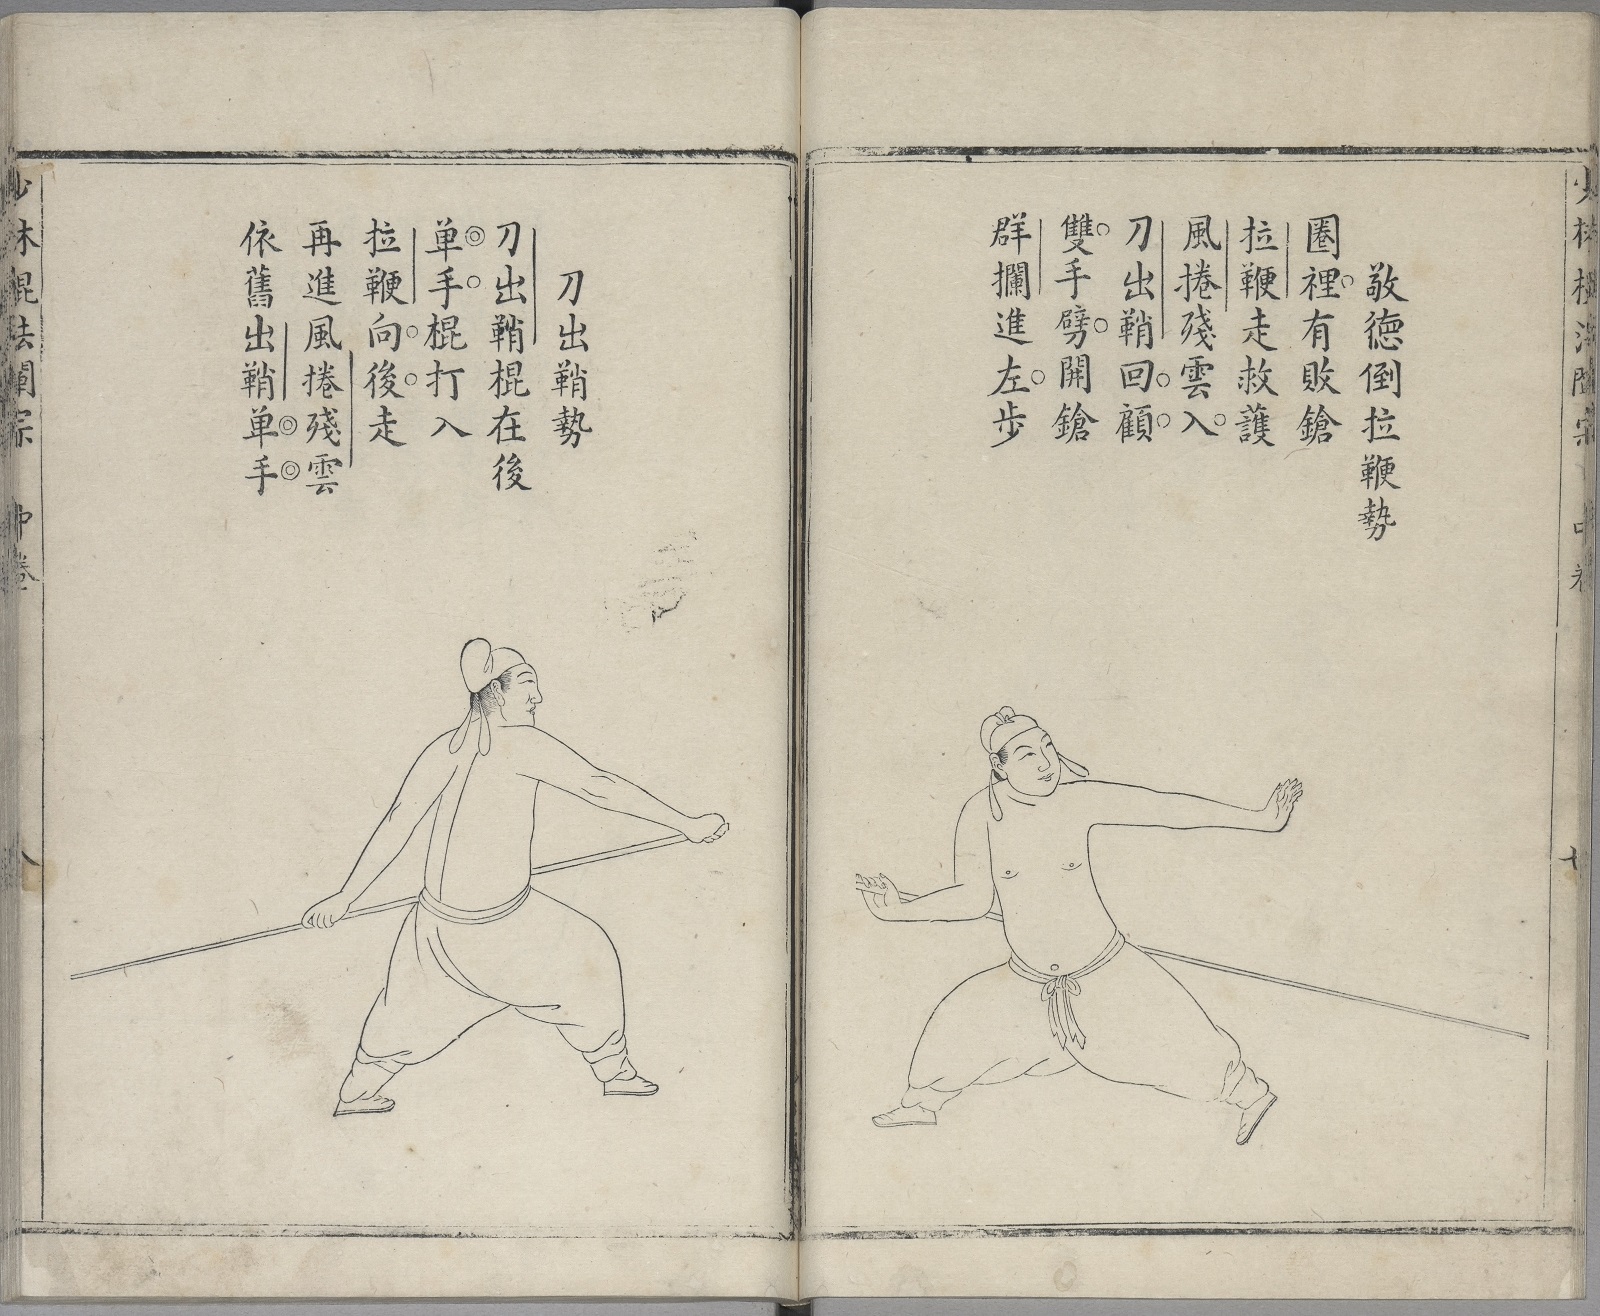 敬德倒拉鞭勢
圈裡有敗鎗
拉鞭走救護
風捲殘雲入
刀出鞘回顧
雙手劈開鎗
群攔進左步
刀出鞘勢
刀出鞘棍在後
单手棍打入
拉鞭向後走
再進風捲殘雲
依舊出鞘单手
少林棍法闡宗 中卷
八